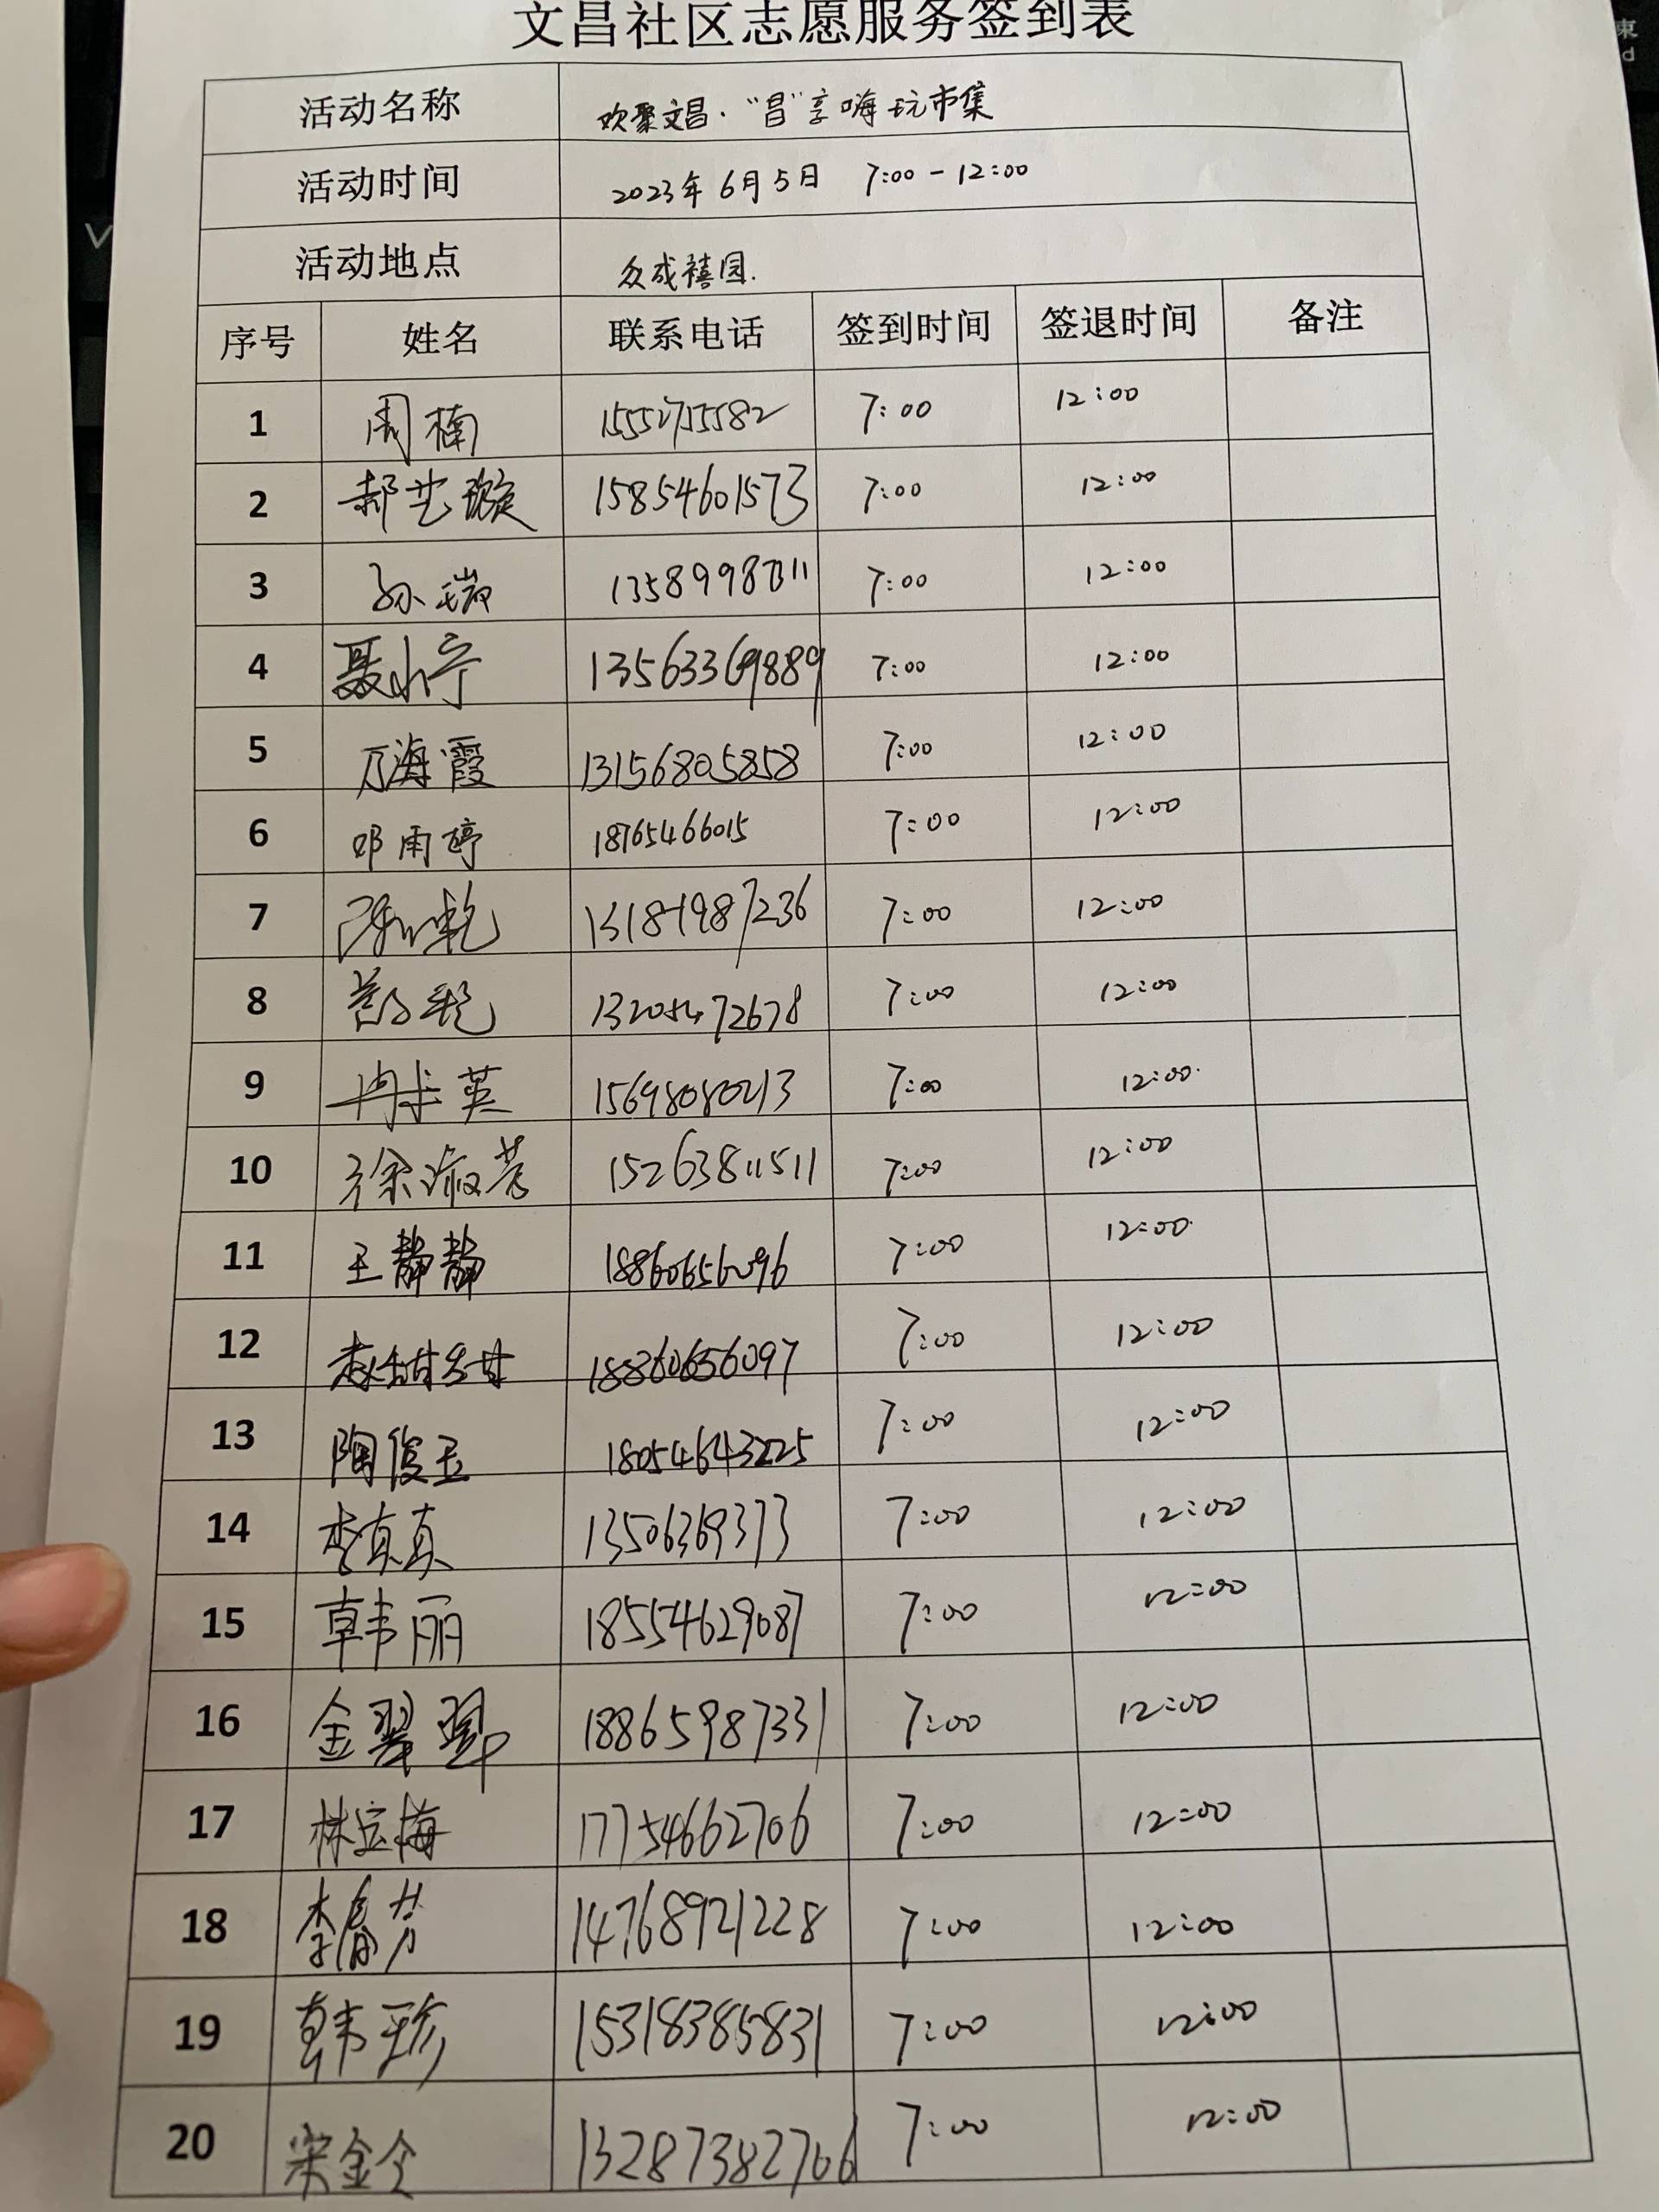 文昌社区志愿服务签到表
活动名称 欢聚文昌·"昌"享嗨玩市集
活动时间 2023年6月5日 7:00-12:00
活动地点 众成禧园.
序号 姓名 联系电话 签到时间 签退时间 备注
1 周楠 7:00 12:00
2 郝艺璇 15854601573 7:00 12:00
3 孙瑞 7:00 12:00
4 聂小宁 13563369889 7:00 12:00
5 万海霞 13156805858 7:00 12:00
6 邓雨婷 18765466015 7:00 12:00
7 13181987236 7:00 12:00
8 13205472678 7:00 12:00
9 15698080213 7:00 12:00
10 15263811511 7:00 12:00
11 王静静 18860656096 7:00 12:00
12 18860656097 7:00 12:00
13 陶俊玉 18054643225 7:00 12:00
14 李真真 13506369373 7:00 12:00
15 韩丽 18554629087 7:00 12:00
16 金翠翠 18865987331 7:00 12:00
17 林立梅 17754662706 7:00 12:00
18 李春芳 14768921228 7:00 12:00
19 韩珍 15318385831 7:00 12:00
20 宋金令 13287382706 7:00 12:00